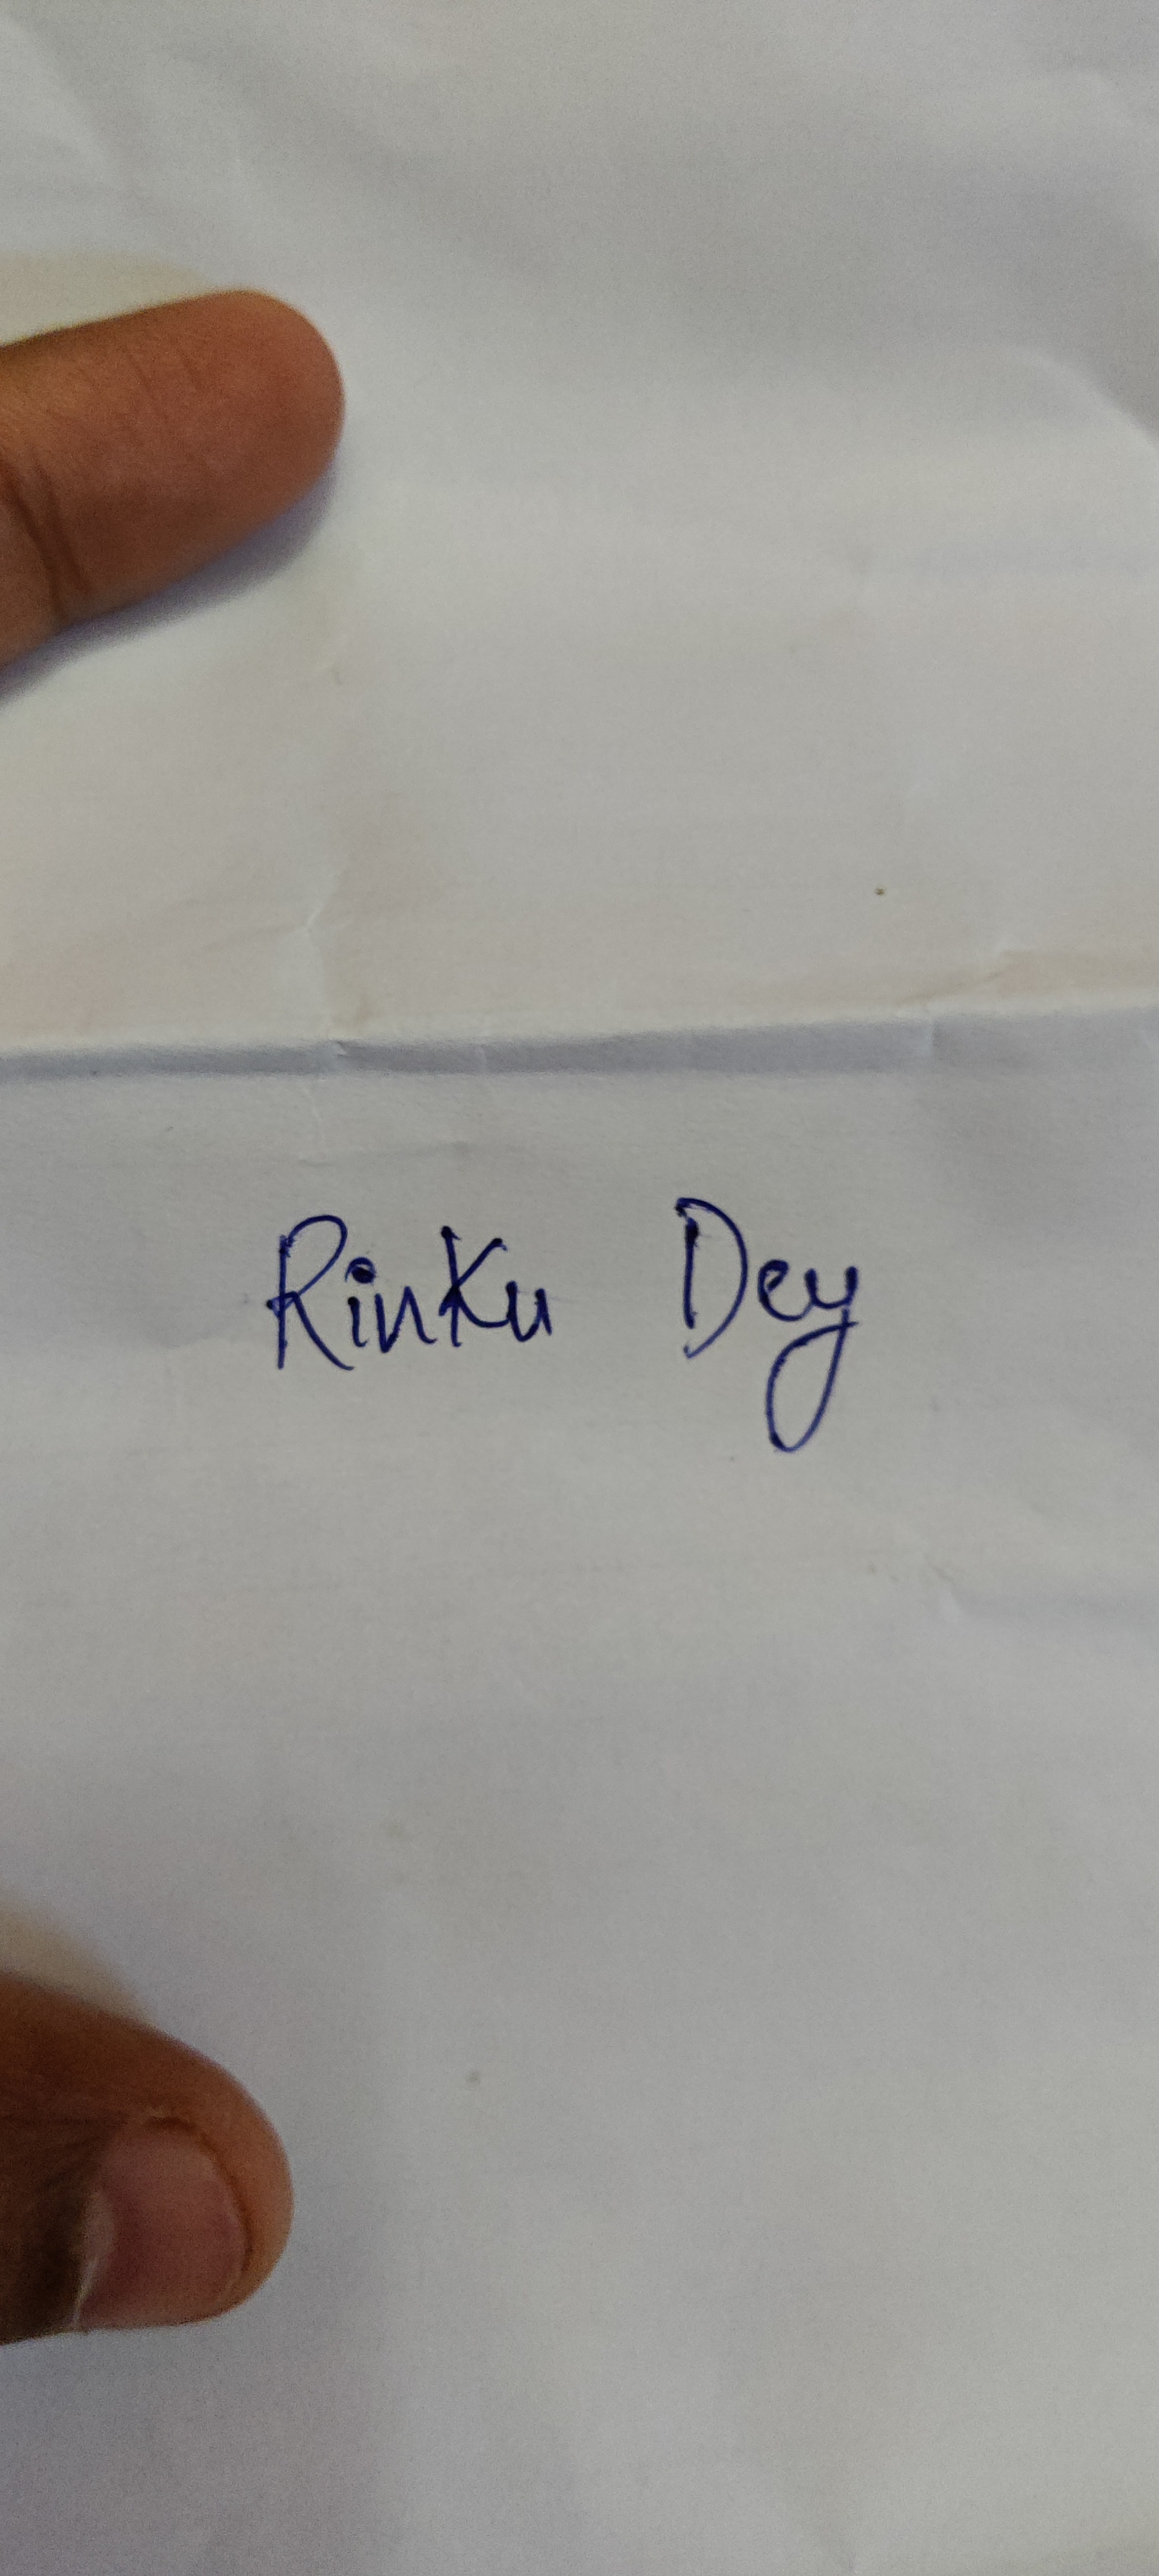 RinKu Dey